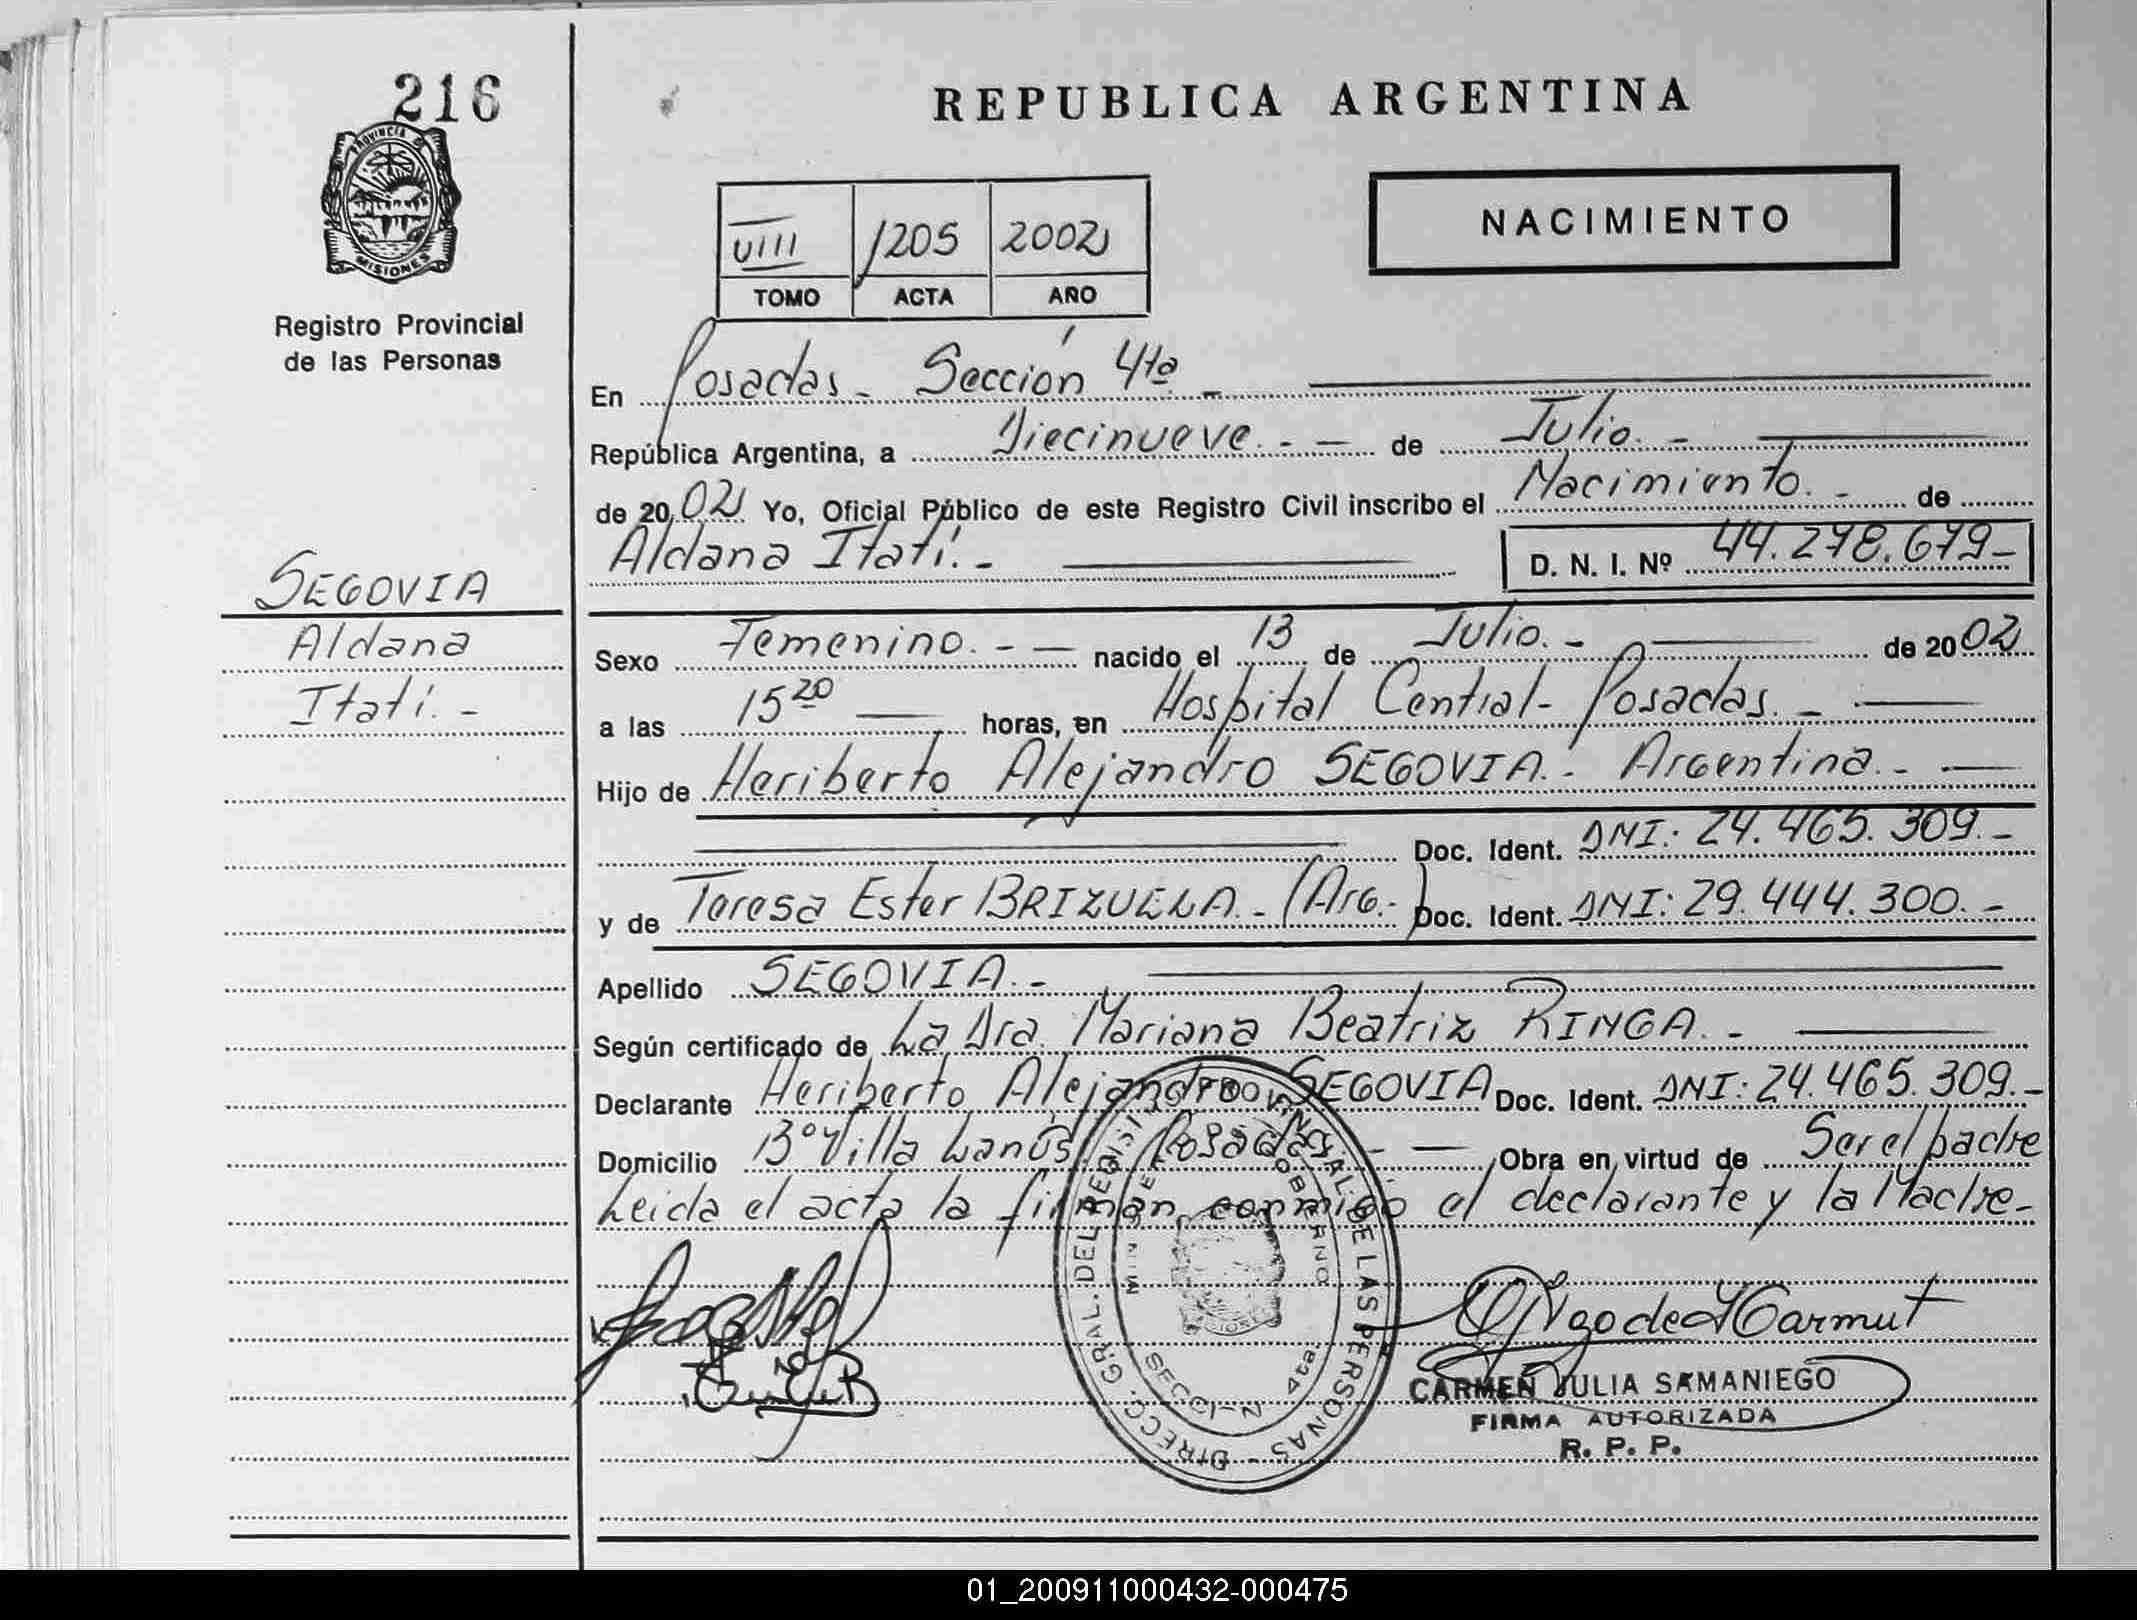 216
PROVINCIA DE
MISIONES
Registro Provincial
de las Personas
SEGOVIA
Aldana
Itatí.-
REPUBLICA ARGENTINA
VIII 1205 2002
TOMO ACTA AÑO
NACIMIENTO
En Posadas - Sección 4ta -
República Argentina, a Diecinueve.- - de Julio.-
de 2002 Yo, Oficial Público de este Registro Civil inscribo el Nacimiento.- de
Aldana Itatí.- D. N. I. Nº 44.278.679-
Sexo Femenino.- - nacido el 13 de Julio.- de 2002
a las 15 20 horas, en Hospital Central- Posadas.-
Hijo de Heriberto Alejandro SEGOVIA.- Argentina.-
Doc. Ident. DNI: 24.465.309.-
y de Teresa Ester BRIZUELA.- (Arg.-) Doc. Ident. DNI: 29.444.300.-
Apellido SEGOVIA.-
Según certificado de La Dra. Mariana Beatriz RINGA.-
Declarante Heriberto Alejandro SEGOVIA Doc. Ident. DNI: 24.465.309.-
Domicilio Bº Villa Lanús Posadas - Obra en virtud de Ser el padre
Leida el acta la firman conmigo el declarante y la Madre-
DIRECC. GRAL. DEL REGIST. PROVINCIAL DE LAS PERSONAS
GOBIERNO
SECCION 4ta.
CARMEN JULIA SAMANIEGO
FIRMA AUTORIZADA
R. P. P.
01_200911000432-000475